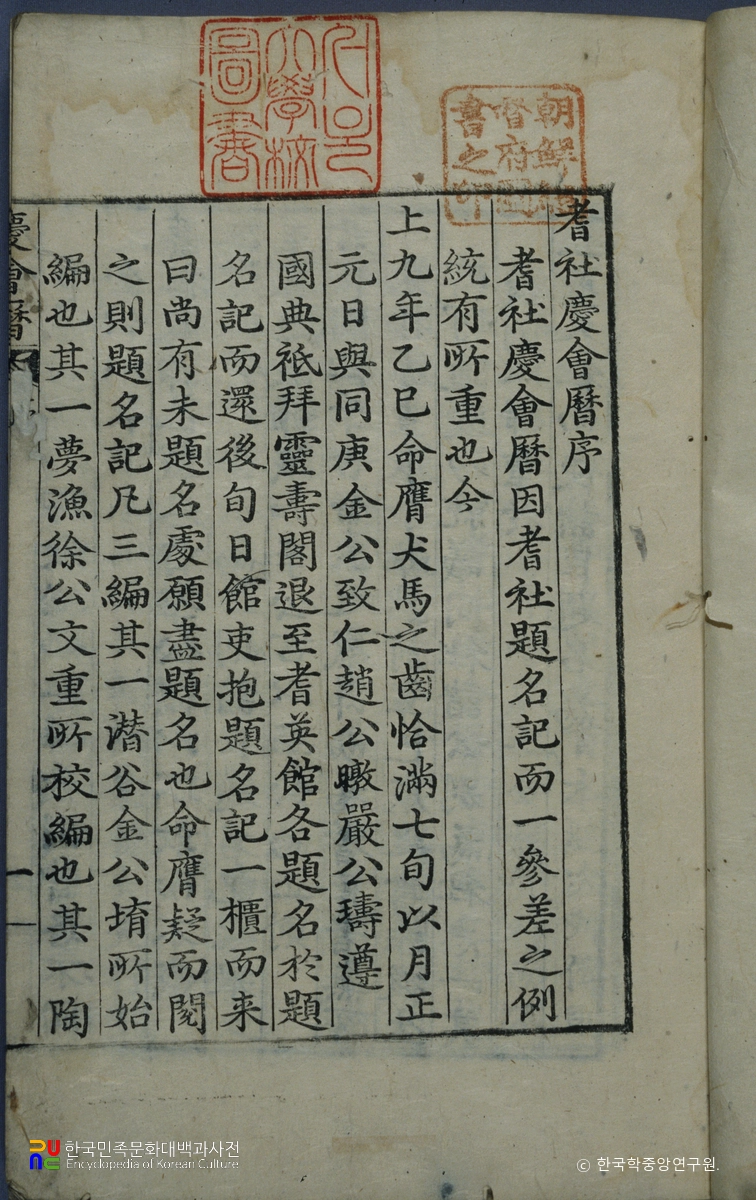 耆社慶會曆序
耆社慶會曆因耆社題名記而一參差之例
統有所重也今
上九年乙巳命膺犬馬之齒恰滿七旬以月正
元日與同庚金公致仁趙公暾嚴公璹遵
國典祗拜靈壽閣退至耆英館各題名於題
名記而還後旬日館吏抱題名記一櫃而来
曰尚有未題名處願盡題名也命膺疑而閱
之則題名記凡三編其一潜谷金公堉所始
編也其一夢漁徐公文重所校編也其一陶
慶會曆
序
一
朝鮮總
督府圖
書之印
大學校
圖書
한국민족문화대백과사전
Encyclopedia of Korean Culture
ⓒ 한국학중앙연구원.